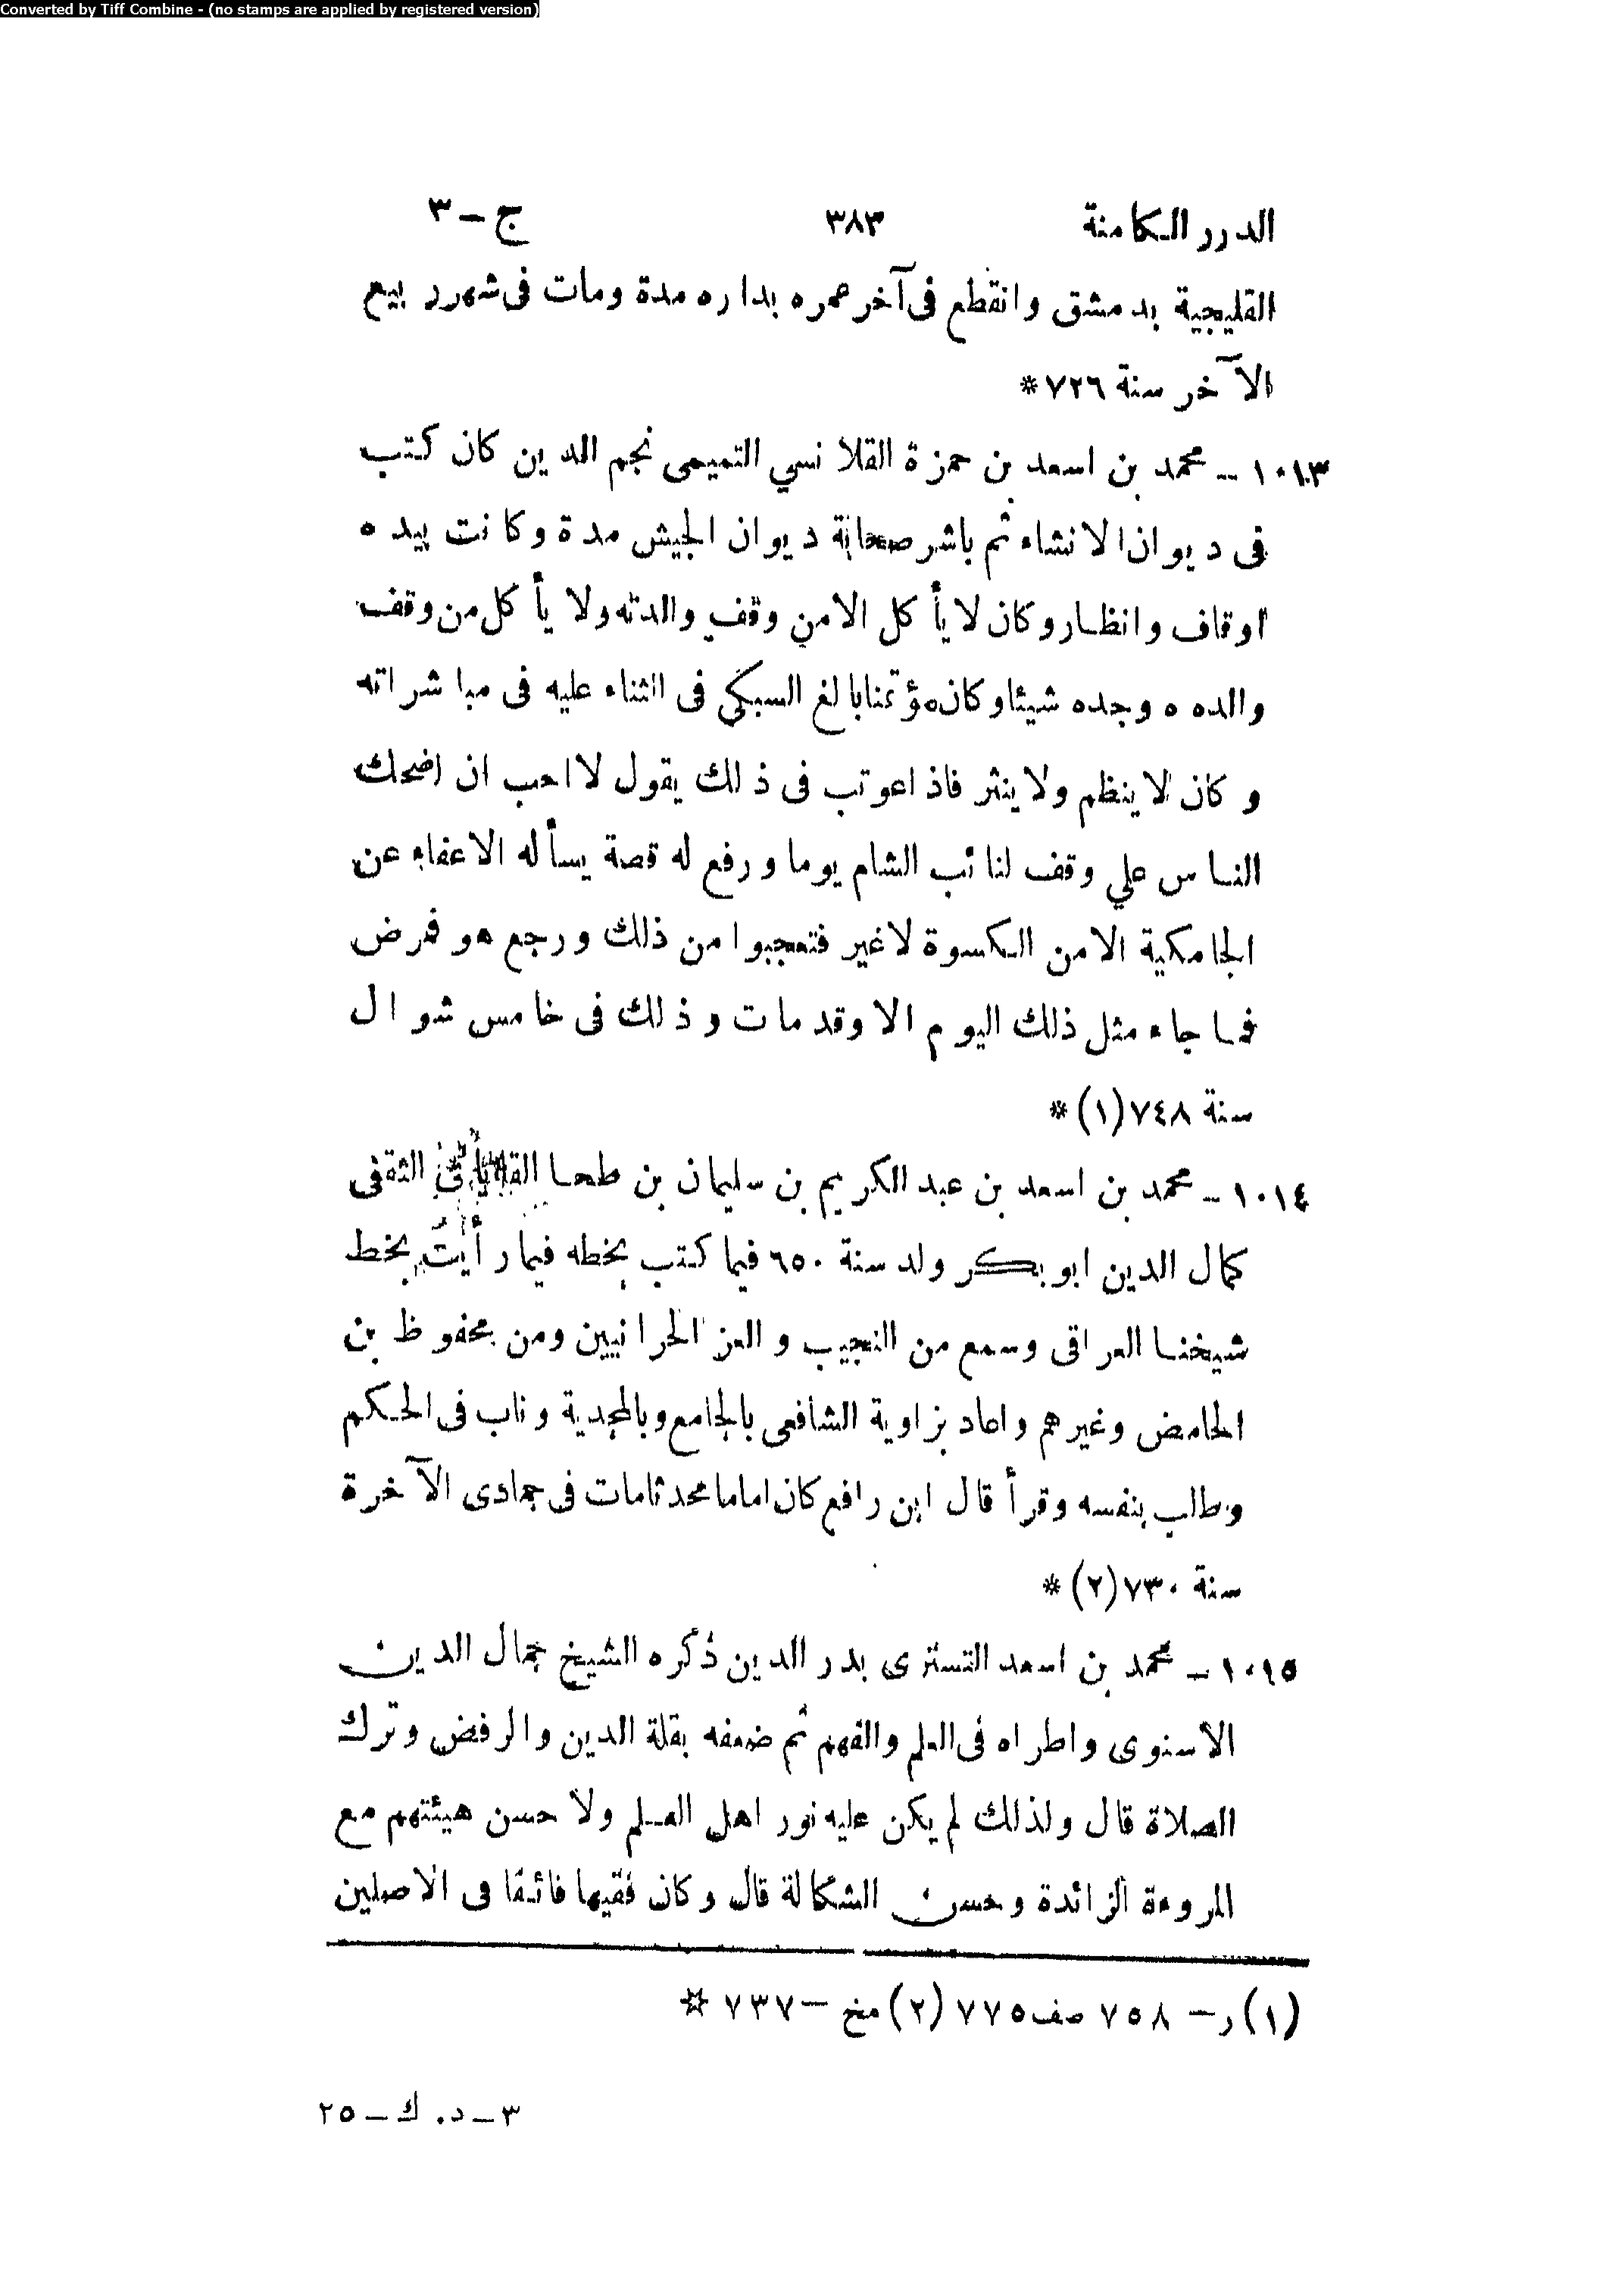 Converted by Tiff Combine - (no stamps are applied by registered version)
الدرر الكامنة ٣٨٣ ج – ٣
القليجية بدمشق وانقطع فى آخر عمره بداره مدة ومات فى شهر ربيع
الآخر سنة ٧٢٦ *
١٠١٣ – محمد بن اسعد بن حمزة القلانسي التميمى نجم الدين كان كتب
فى ديوان الانشاء ثم باشر صحابة ديوان الجيش مدة وكانت بيده
اوقاف وانظار وكان لا يأكل الا من وقف والدته ولا يأكل من وقف
والده وجده شيئا وكان مؤتمنا بالغ السبكي فى الثناء عليه فى مباشراته
وكان لا ينظم ولا ينثر فاذا عوتب فى ذلك يقول لا احب ان اضحك
الناس علي وقف لنائب الشام يوما ورفع له قصة يسأله الاعفاء عن
الجامكية الا من الكسوة لا غير فتعجبوا من ذلك ورجع هو فمرض
فما جاء مثل ذلك اليوم الا وقد مات وذلك فى خامس شوال
سنة ٧٤٨ (١) *
١٠١٤ – محمد بن اسعد بن عبد الكريم بن سليمان بن طحا الثقفى
كمال الدين ابو بكر ولد سنة ٦٥٠ فيما كتب بخطه فيما رأيتُ بخط
شيخنا العراقى وسمع من النجيب والعز الحرانيين ومن محفوظ بن
الحامض وغيرهم واعاد بزاوية الشافعى بالجامع وبالمجدية وناب فى الحكم
وطلب بنفسه وقرأ قال ابن رافع كان اماما محدثا مات فى جمادى الآخرة
سنة ٧٣٠ (٢) *
١٠١٥ – محمد بن اسعد التسترى بدر الدين ذكره الشيخ جمال الدين
الاسنوى واطراه فى العلم والفهم ثم ضعفه بقلة الدين والرفض وترك
الصلاة قال ولذلك لم يكن عليه نور اهل العلم ولا حسن هيئتهم مع
المروءة الزائدة وحسن الشكالة قال وكان فقيها فائقا فى الاصلين
(١) ر – ٧٥٨ صف ٧٧٥ (٢) مخ – ٧٣٧ *
٣ – د. ك – ٢٥